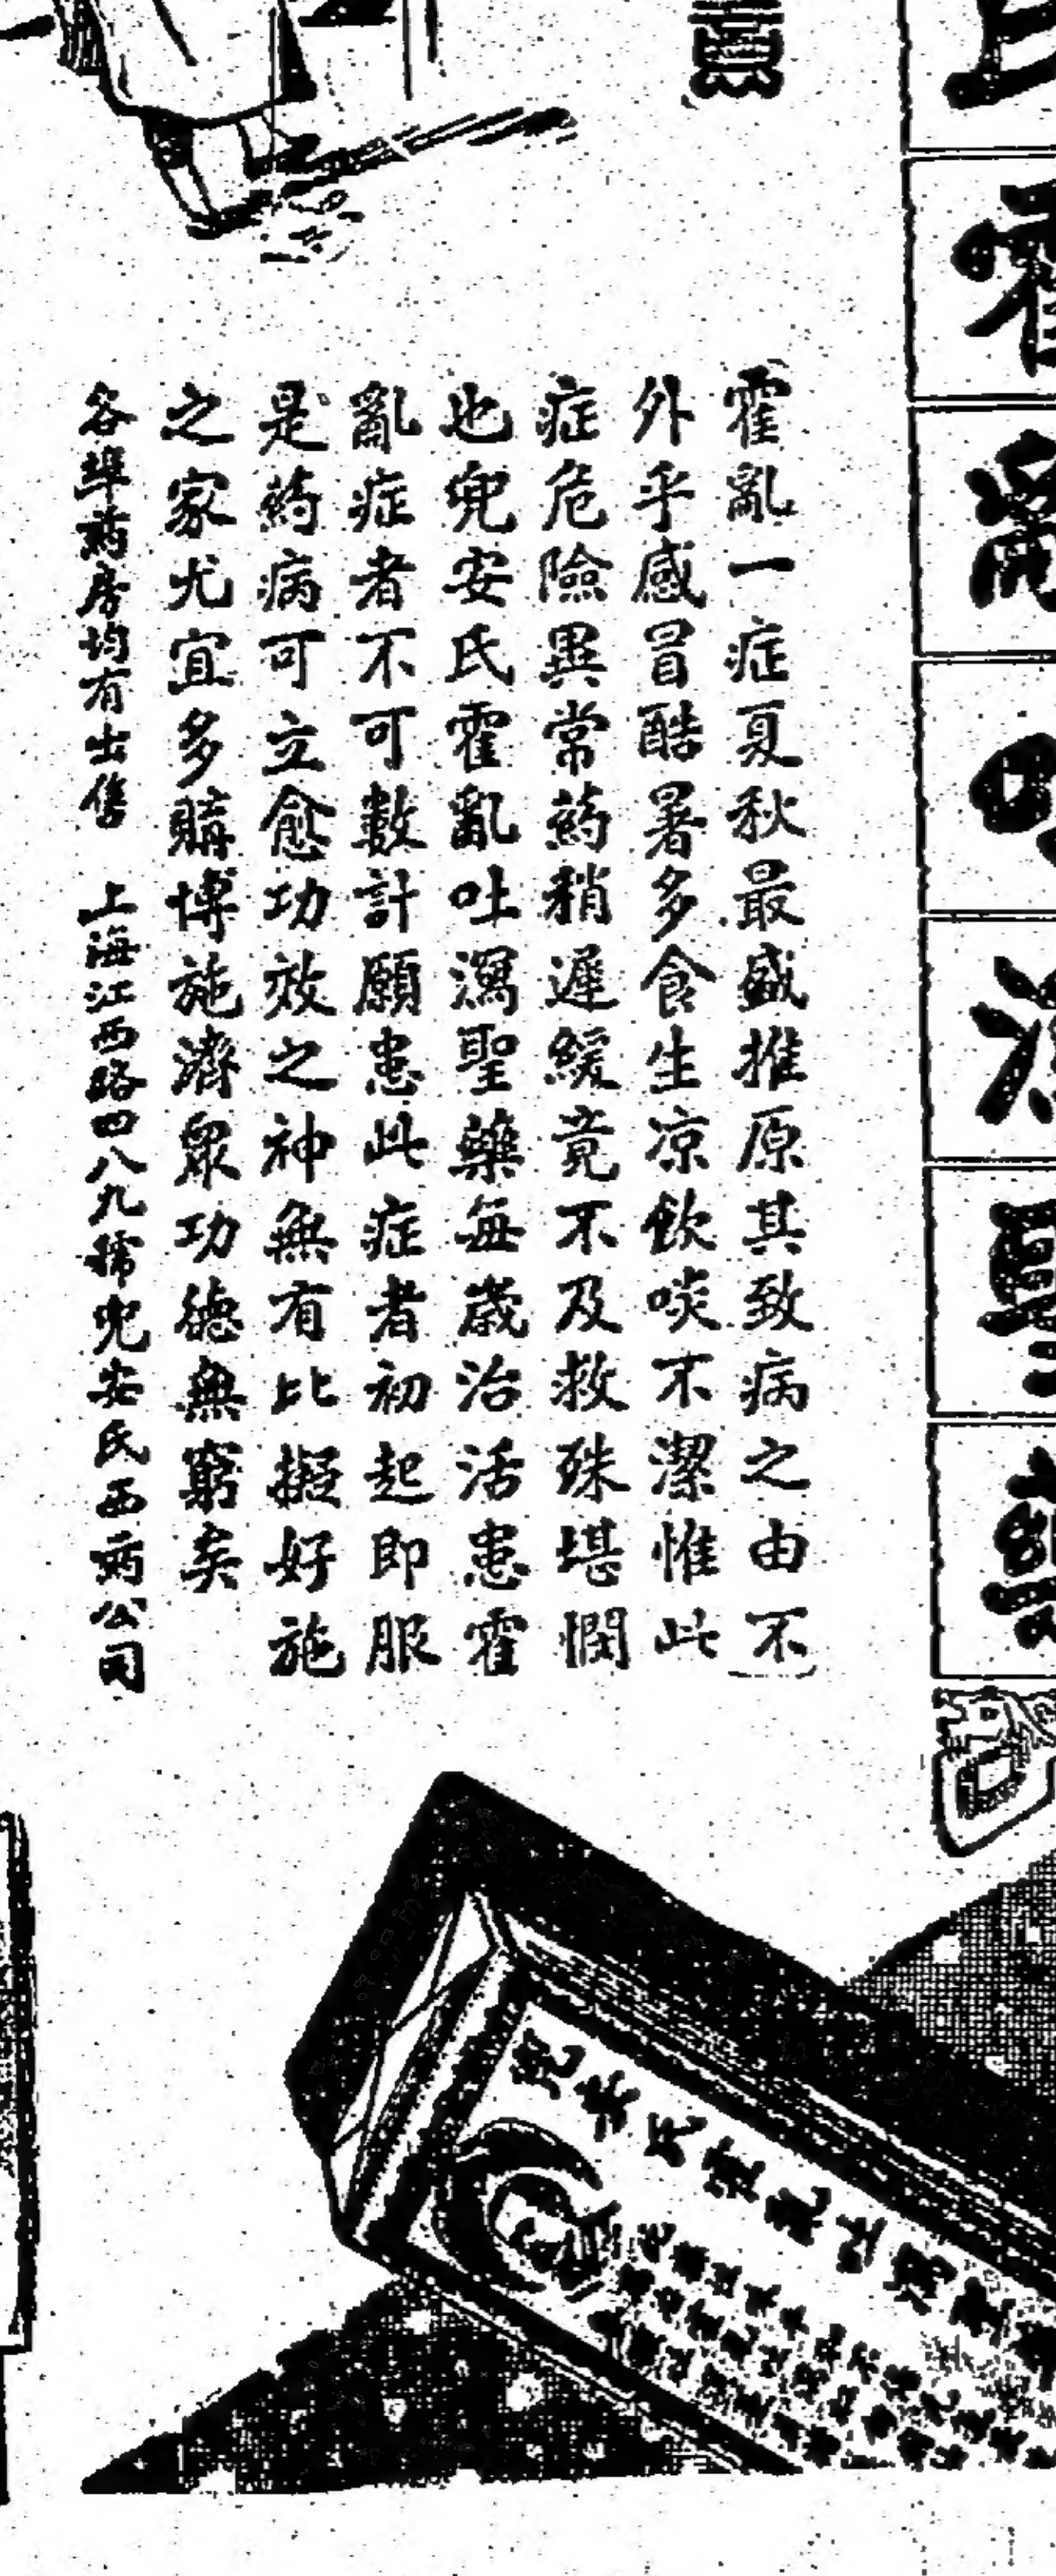 霍亂吐瀉聖藥
霍亂一症夏秋最盛推原其致病之由不
外乎感冒酷暑多食生凉飲啖不潔惟此
症危險異常葯稍遲緩竟不及救殊堪憫
也兜安氏霍亂吐瀉聖藥每歲治活患霍
亂症者不可數計願患此症者初起即服
是葯病可立愈功效之神無有比擬好施
之家尤宜多購博施濟眾功德無窮矣
各埠葯房均有出售 上海江西路四八九號兜安氏西葯公司
兜安氏霍亂吐瀉